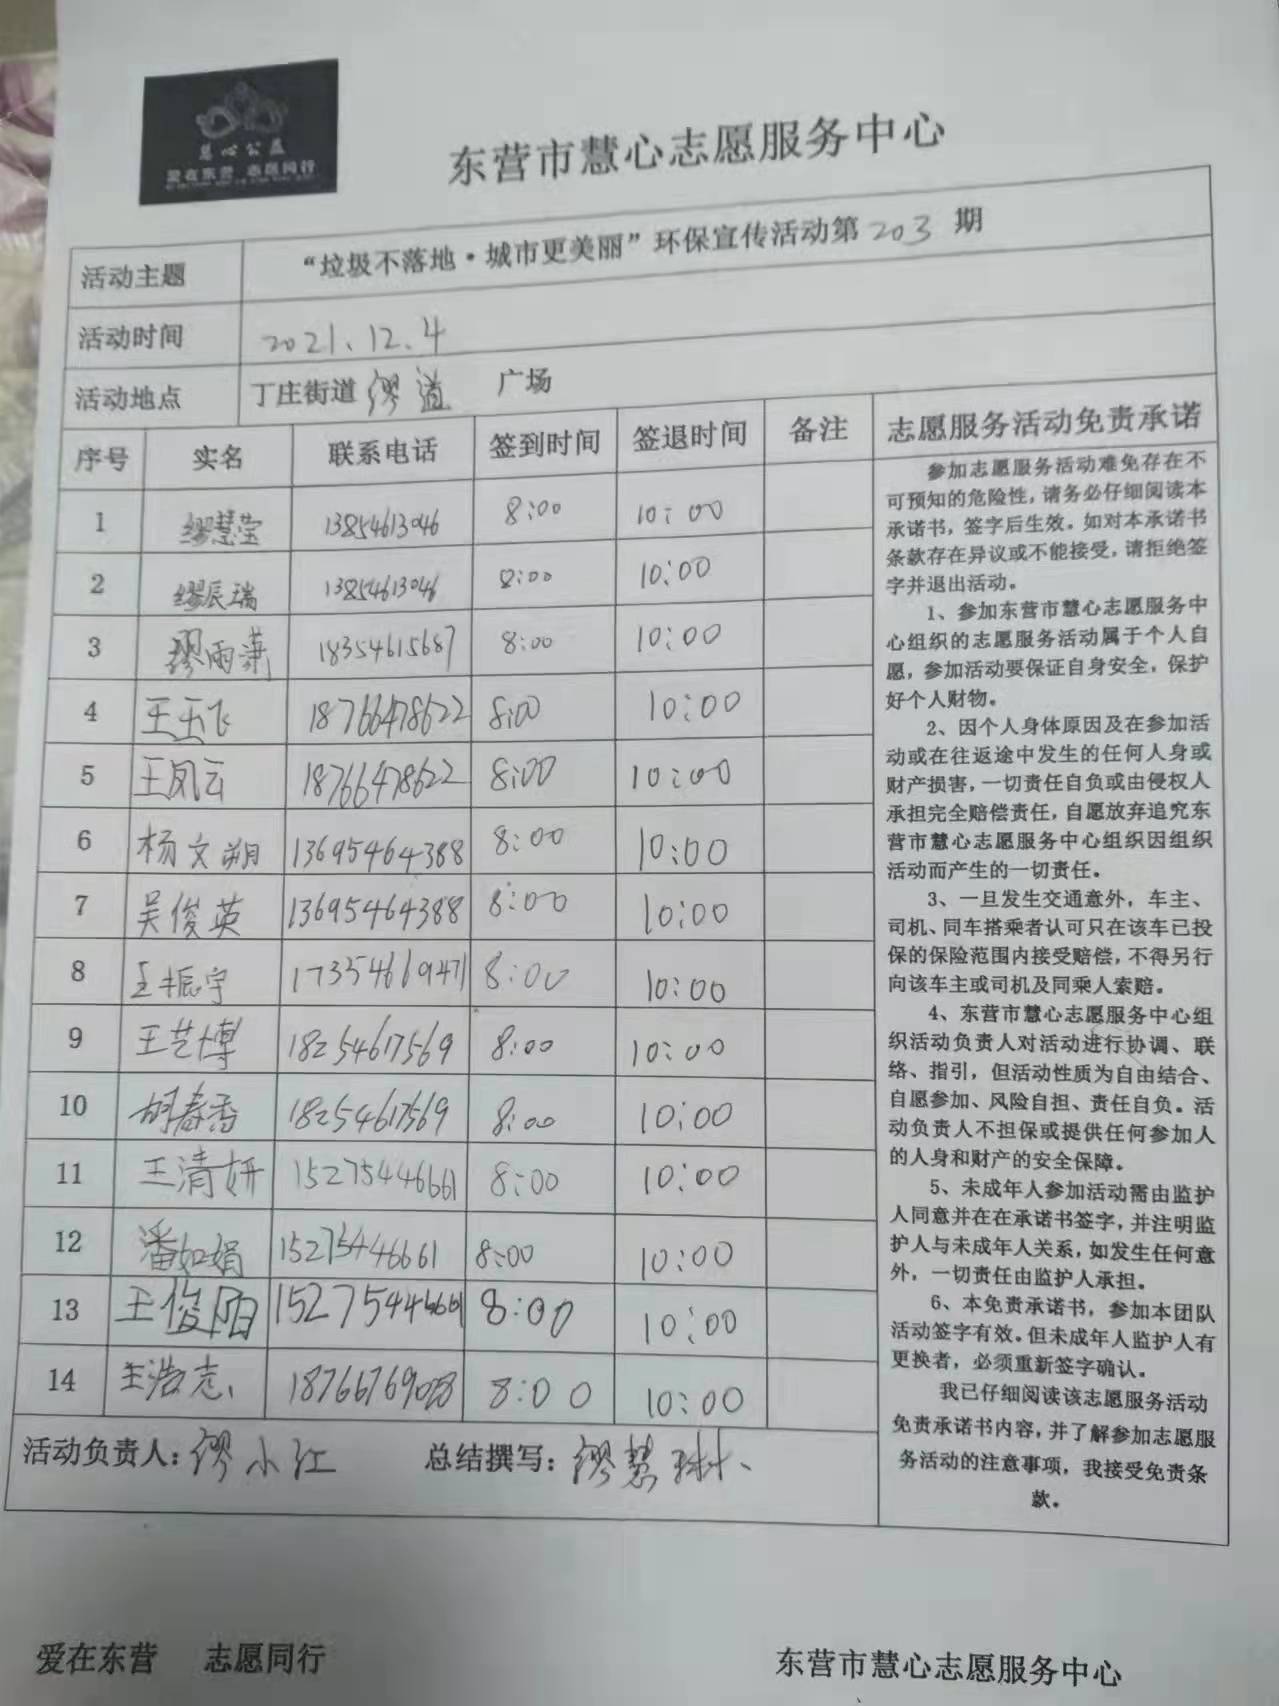 慧心公益
爱在东营 志愿同行
东营市慧心志愿服务中心
活动主题 “垃圾不落地·城市更美丽”环保宣传活动第203期
活动时间 2021.12.4
活动地点 丁庄街道缪道 广场
序号 实名 联系电话 签到时间 签退时间 备注
1 缪慧莹 13854613046 8:00 10:00
2 缪辰瑞 13854613046 8:00 10:00
3 缪雨潇 18354615687 8:00 10:00
4 王玉飞 18766478622 8:00 10:00
5 王凤云 18766478622 8:00 10:00
6 杨文朔 13695464388 8:00 10:00
7 吴俊英 13695464388 8:00 10:00
8 王振宇 17354669471 8:00 10:00
9 王艺博 18254617569 8:00 10:00
10 胡春香 18254617569 8:00 10:00
11 王清妍 15275446661 8:00 10:00
12 潘如娟 15275446661 8:00 10:00
13 王俊阳 15275446661 8:00 10:00
14 王浩志 8:00 10:00
活动负责人:缪小江 总结撰写:缪慧琳
志愿服务活动免责承诺
参加志愿服务活动难免存在不
可预知的危险性,请务必仔细阅读本
承诺书,签字后生效。如对本承诺书
条款存在异议或不能接受,请拒绝签
字并退出活动。
1、参加东营市慧心志愿服务中
心组织的志愿服务活动属于个人自
愿,参加活动要保证自身安全,保护
好个人财物。
2、因个人身体原因及在参加活
动或在往返途中发生的任何人身或
财产损害,一切责任自负或由侵权人
承担完全赔偿责任,自愿放弃追究东
营市慧心志愿服务中心组织因组织
活动而产生的一切责任。
3、一旦发生交通意外,车主、
司机、同车搭乘者认可只在该车已投
保的保险范围内接受赔偿,不得另行
向该车主或司机及同乘人索赔。
4、东营市慧心志愿服务中心组
织活动负责人对活动进行协调、联
络、指引,但活动性质为自由结合、
自愿参加、风险自担、责任自负。活
动负责人不担保或提供任何参加人
的人身和财产的安全保障。
5、未成年人参加活动需由监护
人同意并在在承诺书签字,并注明监
护人与未成年人关系,如发生任何意
外,一切责任由监护人承担。
6、本免责承诺书,参加本团队
活动签字有效。但未成年人监护人有
更换者,必须重新签字确认。
我已仔细阅读该志愿服务活动
免责承诺书内容,并了解参加志愿服
务活动的注意事项,我接受免责条
款。
爱在东营 志愿同行
东营市慧心志愿服务中心